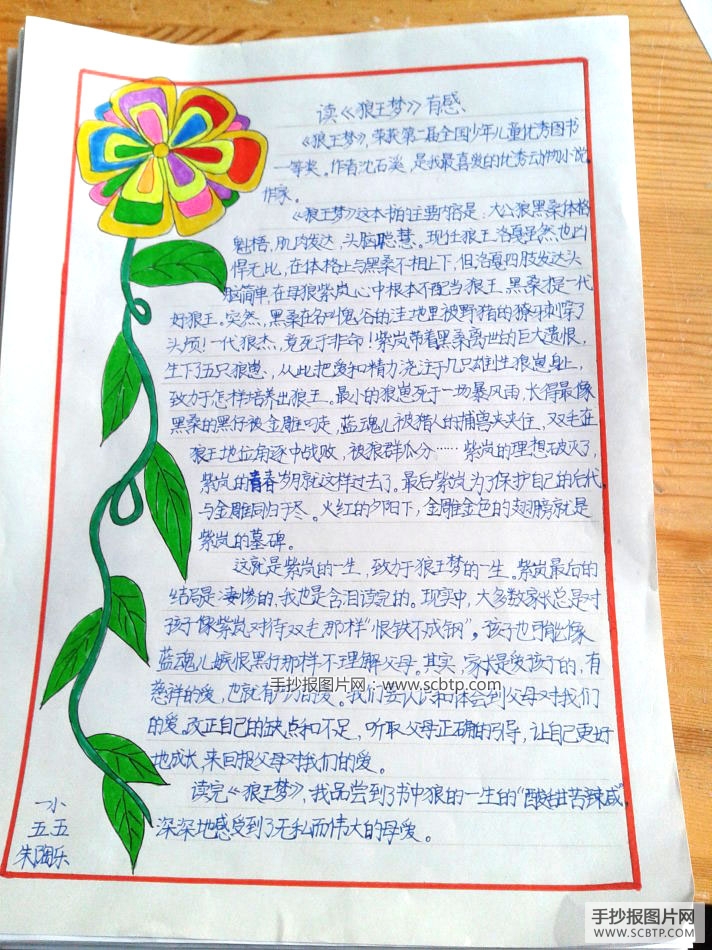 读《狼王梦》有感、
《狼王梦》,荣获第二届全国少年儿童优秀图书
一等奖。作者沈石溪,是我最喜爱的优秀动物小说
作家。
《狼王梦》这本书的主要内容是:大公狼黑桑体格
魁梧,肌肉发达,头脑聪慧。现任狼王洛戛虽然也凶
悍无比,在体格上与黑桑不相上下,但洛戛四肢发达头
脑简单,在母狼紫岚心中根本不配当狼王,黑桑才是一代
好狼王。突然,黑桑在名叫鬼谷的洼地里被野猪的獠牙刺穿了
头颅!一代狼杰,竟死于非命!紫岚带着黑桑离世的巨大遗恨,
生下了五只狼崽,从此把爱和精力浇注于几只雄性狼崽身上,
致力于怎样培养出狼王。最小的狼崽死于一场暴风雨,长得最像
黑桑的黑仔被金雕叼走,蓝魂儿被猎人的捕兽夹夹住,双毛在
狼王地位角逐中战败,被狼群瓜分……紫岚的理想破灭了,
紫岚的青春岁月就这样过去了。最后紫岚为了保护自己的后代,
与金雕同归于尽。火红的夕阳下,金雕金色的翅膀就是
紫岚的墓碑。
这就是紫岚的一生,致力于狼王梦的一生。紫岚最后的
结局是凄惨的,我也是含泪读完的。现实中,大多数家长总是对
孩子像紫岚对待双毛那样“恨铁不成钢”。孩子也可能像
蓝魂儿嫉恨黑仔那样不理解父母。其实,家长是爱孩子的,有
慈祥的爱,也就有的爱。我们要认识和体会到父母对我们
的爱,改正自己的缺点和不足,听取父母正确的引导,让自己更好
地成长,来回报父母对我们的爱。
读完《狼王梦》,我品尝到了书中狼的一生的“酸甜苦辣咸”,
深深地感受到了无私而伟大的母爱。
一小
五五
朱陶乐
手抄报图片网:www.scbtp.com
手抄报图片网
WWW.SCBTP.COM